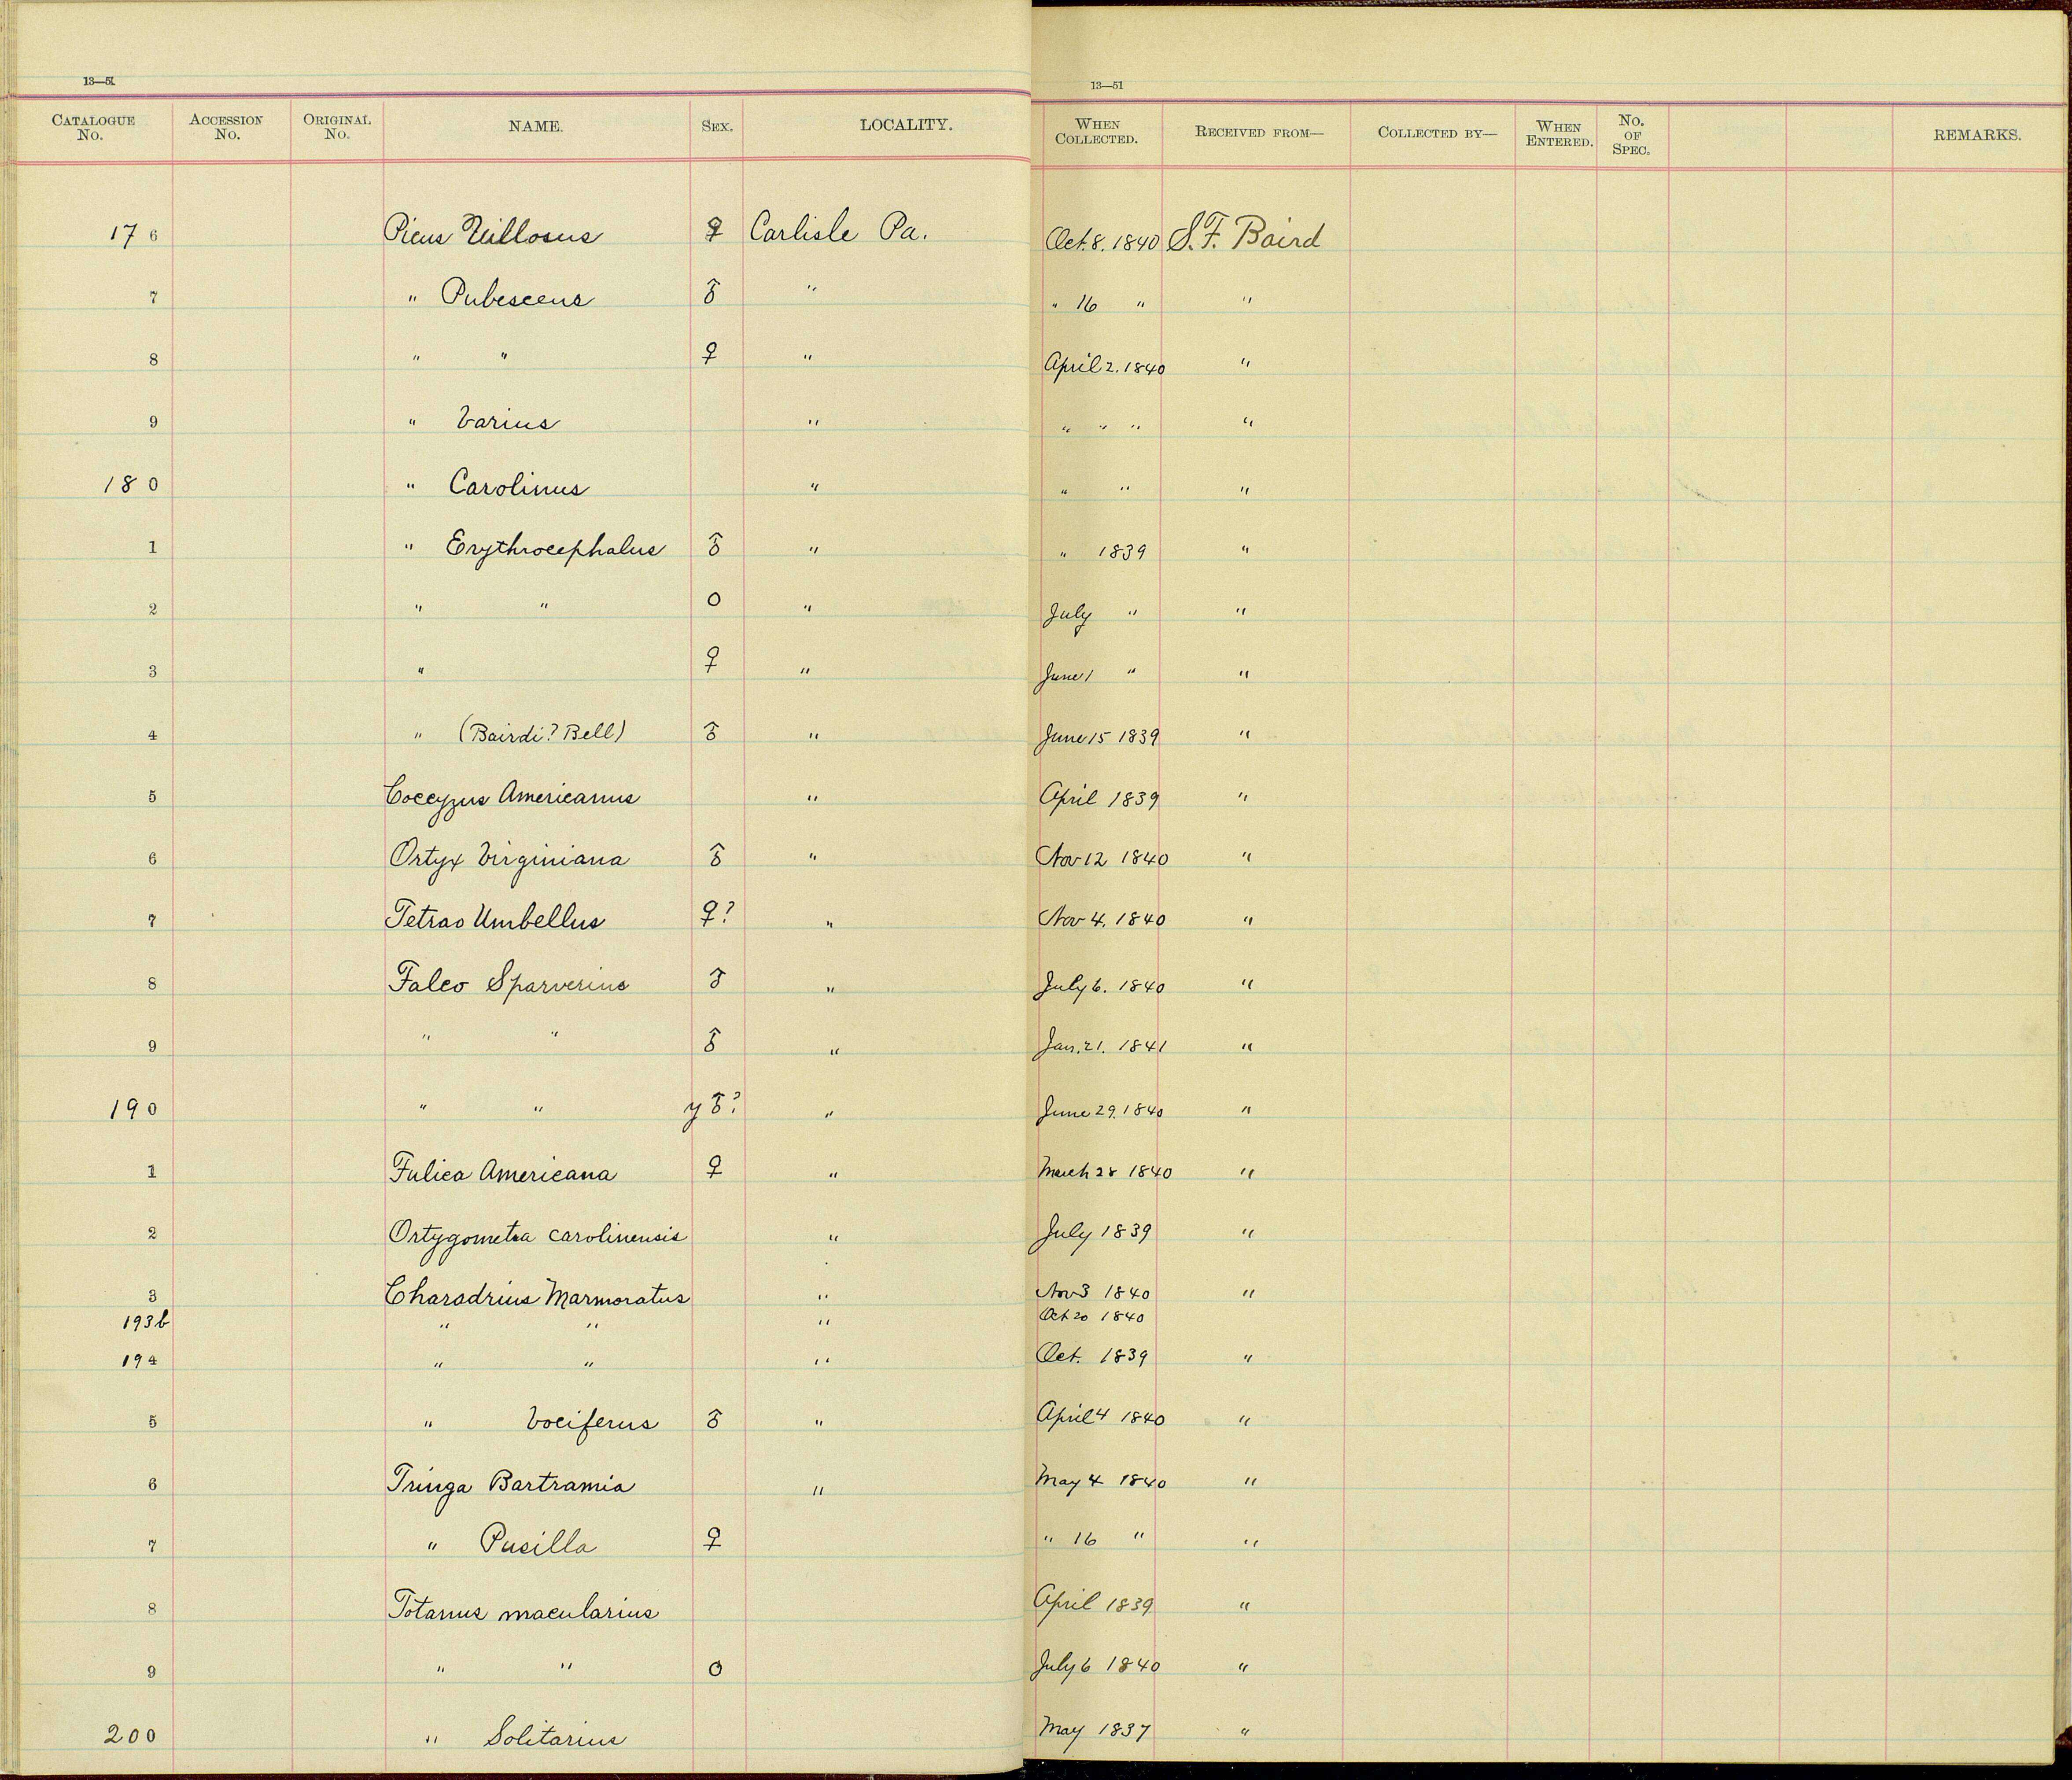 13—51 13—51
CATALOGUE No. ACCESSION No. ORIGINAL No. NAME. SEX. LOCALITY. WHEN COLLECTED. RECEIVED FROM— COLLECTED BY— WHEN ENTERED. No. OF SPEC. REMARKS.
176 Picus Villosus ♀ Carlisle Pa. Oct. 8. 1840 S. F. Baird
7 " Pubescens ♂ " " 16 " "
8 " " ♀ " April 2. 1840 "
9 " Varius " " " " "
180 " Carolinus " " " "
1 " Erythrocephalus ♂ " " 1839 "
2 " " O " July " "
3 " ♀ " June 1 " "
4 " (Bairdi? Bell) ♂ " June 15 1839 "
5 Coccyzus Americanus " April 1839 "
6 Ortyx Virginiana ♂ " Nov 12 1840 "
7 Tetrao Umbellus ♀? " Nov 4. 1840 "
8 Falco Sparverius ♂ " July 6. 1840 "
9 " " ♂ " Jan. 21. 1841 "
190 " " y ♂? " June 29. 1840 "
1 Fulica Americana ♀ " March 28 1840 "
2 Ortygometra carolinensis " July 1839 "
3 Charadrius Marmoratus " Nov 3 1840 "
193b " " " Oct 20 1840
194 " " " Oct. 1839 "
5 " Vociferus ♂ " April 4 1840 "
6 Tringa Bartramia " May 4 1840 "
7 " Pusilla ♀ " 16 " "
8 Totanus macularius April 1839 "
9 " " O July 6 1840 "
200 " Solitarius May 1837 "